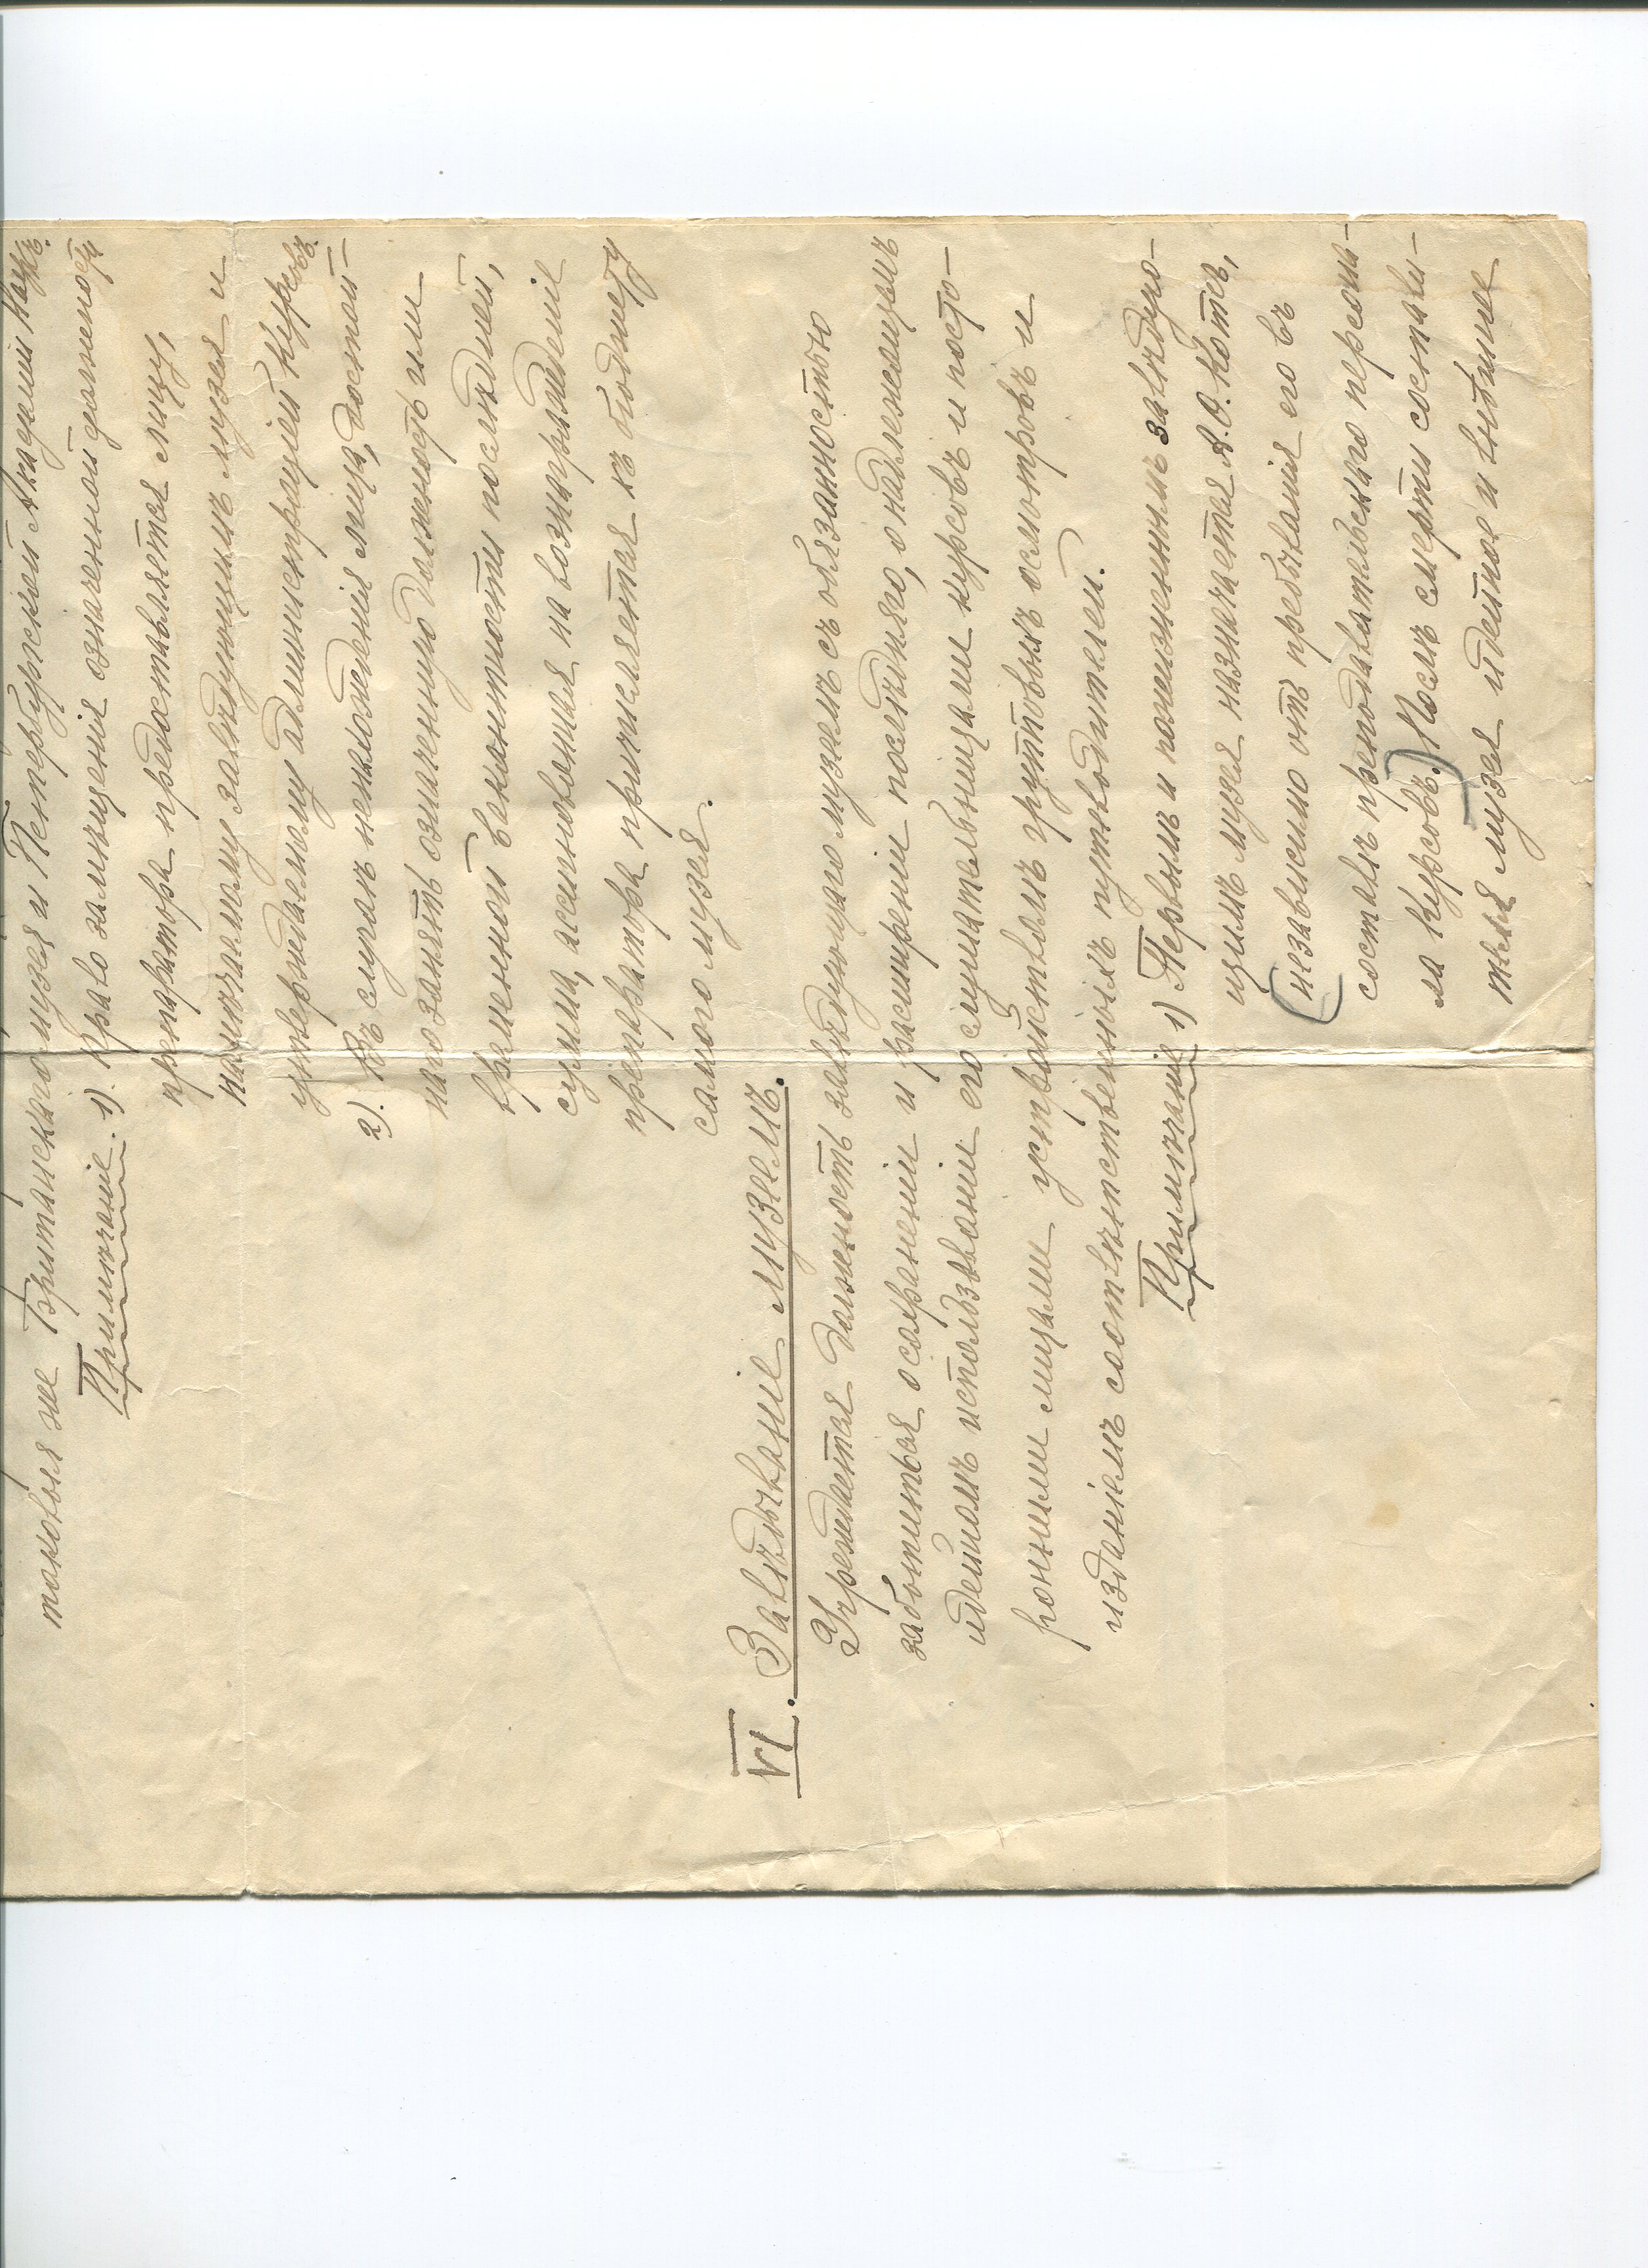 таковыя же Британскаго музея и Петербургской Академіи Наукъ.
Примѣчаніе. 1). Право замѣщенія означенной должности
препаратора предоставляется лицу,
намѣчаемому завѣдующимъ музея и
утверждаемому администраціей Курсовъ.
2). Въ случаѣ ненахожденія лица, достой-
наго занять означенную должность или
временной вакантности послѣдней,
сумма, ассигнованная на вознагражденіе
препаратора причисляется къ бюджету
самого музея.
VI. Завѣдываніе музеемъ.
Учреждается должность завѣдующаго музеемъ съ обязанностью
заботиться о сохраненіи и расширеніи послѣдняго, о надлежащемъ
идейномъ использованіи его слушательницами курсовъ и посто-
ронними лицами устройствомъ групповыхъ осмотровъ и
изданіемъ соотвѣтственныхъ путеводителей.
Примѣчаніе 1) Первымъ и пожизненнымъ завѣдую-
щимъ музея назначается А.Ѳ. Котсъ,
(независимо отъ пребыванія его въ
составѣ преподавательскаго персона-
ла Курсовъ.) Послѣ смерти состави-
теля музея идейное и внѣшнее